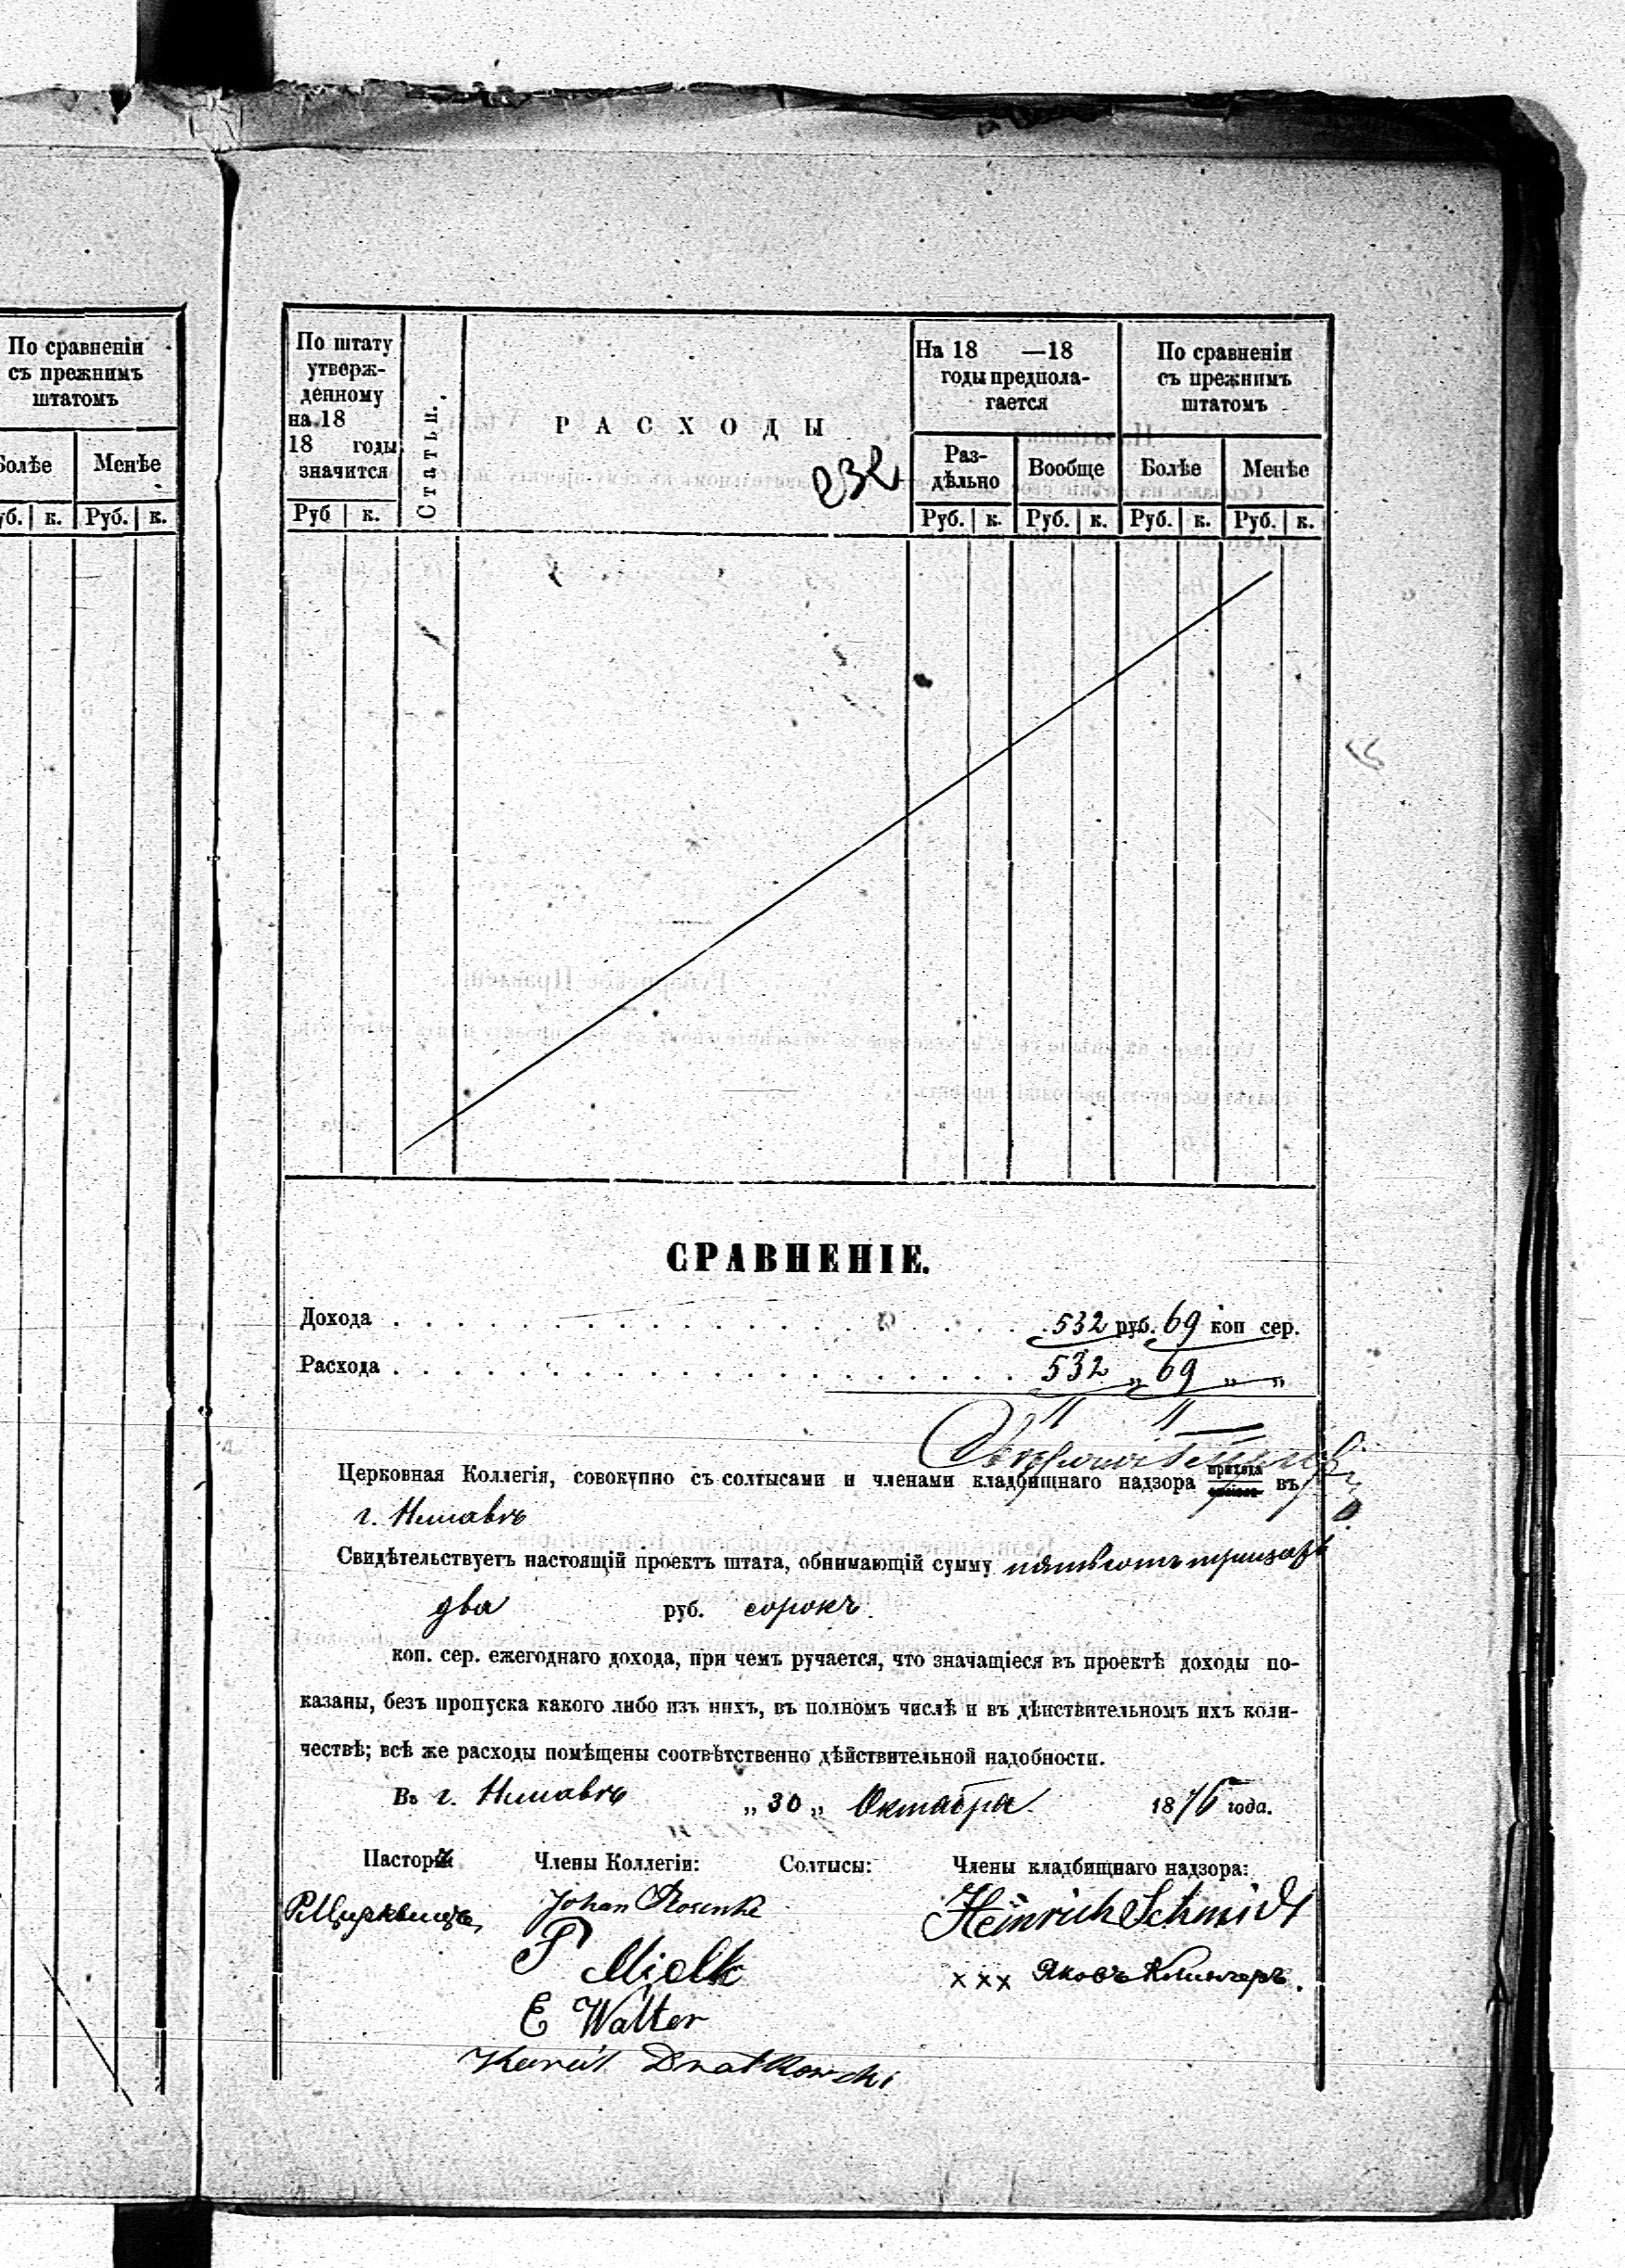 По сравненіи
съ прежнимъ
штатомъ
Болѣе Менѣе
Руб. к. Руб. к.
По штату
утверж-
денному
на 18
18 годы
значится
Руб к.
Статьи.
РАСХОДЫ
232
На 18 —18
годы предпола-
гается
Раз-
дѣльно
Вообще
Руб. к. Руб. к.
По сравненіи
съ прежнимъ
штатомъ
Болѣе Менѣе
Руб. к. Руб. к.
СРАВНЕНІЕ.
Дохода . . . . . . . . . . . . . . . . . . 532 руб. 69 коп сер.
Расхода . . . . . . . . . . . . . . . . . . 532 „ 69 „ „
Церковная Коллегія, совокупно съ солтысами и членами кладбищнаго надзора прихода въ
г. Нешавѣ
Свидѣтельствуетъ настоящій проектъ штата, обнимающій сумму пятьсотъ тридцать
два руб. сорокъ
коп. сер. ежегоднаго дохода, при чемъ ручается, что значащіеся въ проектѣ доходы по-
казаны, безъ пропуска какого либо изъ нихъ, въ полномъ числѣ и въ дѣйствительномъ ихъ коли-
чествѣ; всѣ же расходы помѣщены соотвѣтственно дѣйствительной надобности.
Въ г. Нешавѣ „ 30 „ Октября 1876 года.
Пасторъ Члены Коллегіи: Солтысы: Члены кладбищнаго надзора:
Johan Rosenke
Heinrich Schmidt
P Mielk
xxx Яковъ Клингеръ.
E Walter
Karol Dratkowski